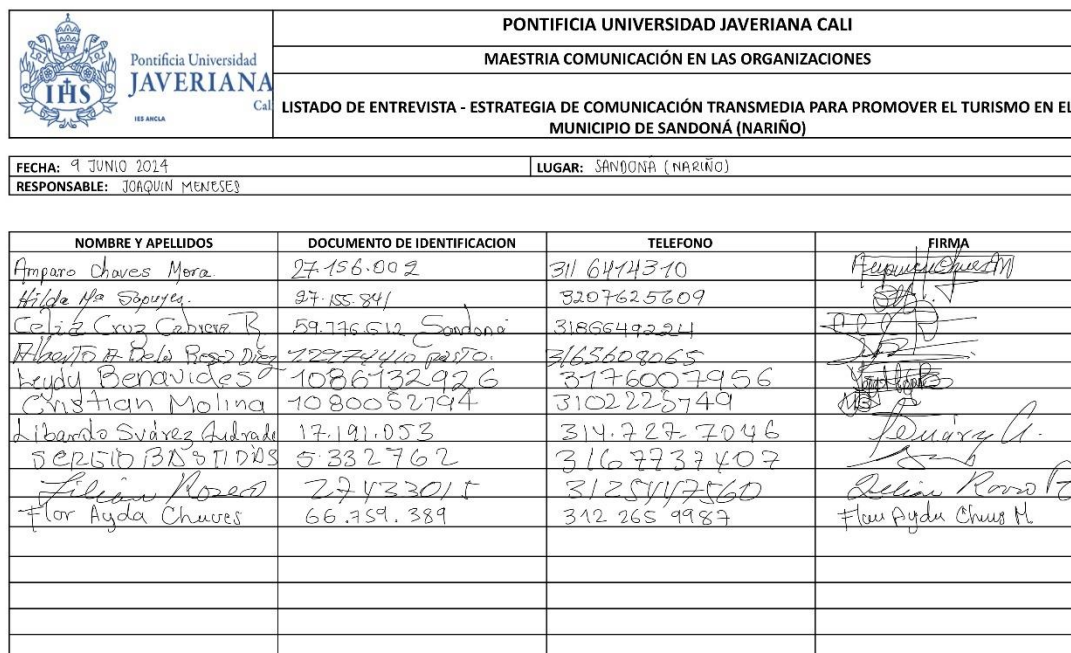 Pontificia Universidad
JAVERIANA
Cali
IES ANCLA
IHS
PONTIFICIA UNIVERSIDAD JAVERIANA CALI
MAESTRIA COMUNICACIÓN EN LAS ORGANIZACIONES
LISTADO DE ENTREVISTA - ESTRATEGIA DE COMUNICACIÓN TRANSMEDIA PARA PROMOVER EL TURISMO EN EL
MUNICIPIO DE SANDONÁ (NARIÑO)
FECHA: 9 JUNIO 2024 LUGAR: SANDONÁ (NARIÑO)
RESPONSABLE: JOAQUIN MENESES
NOMBRE Y APELLIDOS DOCUMENTO DE IDENTIFICACION TELEFONO FIRMA
Amparo Chaves Mora. 27.156.002 311 6414310
Hilda Ma Sapuyes. 27.155.841 3207625609
Celia Cruz Cabrera R 59.776.612 Sandoná 3186649224
Alberto A Dela Rosa Diaz 12974410 pasto. 3165608065
Leydy Benavides 1086132926 3176007956
Cristian Molina 1080052794 3102225749
Libardo Suárez Andrade 17.191.053 314.727.7046 Suárez A.
SERGIO BASTIDAS 5.332762 3167737407
Lilian Rosero 27433015 3125447560 Lilian
Flor Ayda Chaves 66.759.389 312 265 9987 Flor Ayda Chaves M